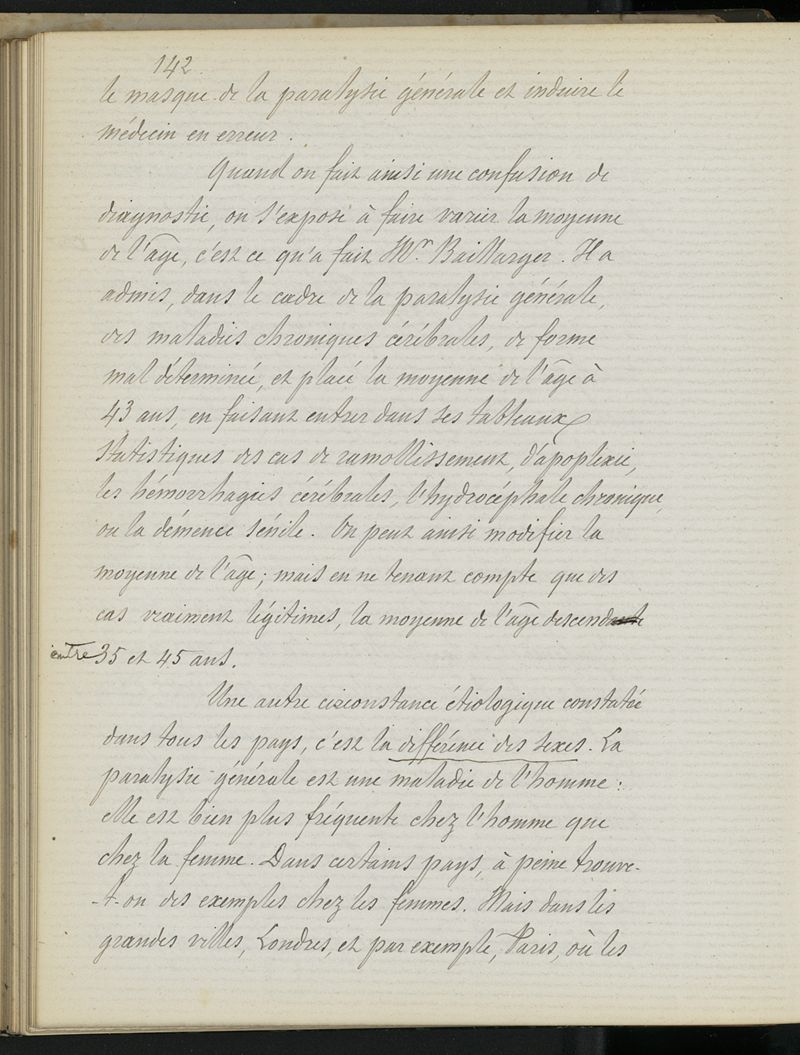 142
le masque de la paralysie générale et induire le
médecin en erreur.
Quand on fait ainsi une confusion de
diagnostic, on s'expose à faire varier la moyenne
de l'âge, c'est ce qu'a fait Mr. Baillarger. Il a
admis, dans le cadre de la paralysie générale,
des maladies chroniques cérébrales, de forme
mal déterminée, et placé la moyenne de l'âge à
43 ans, en faisant entrer dans ses tableaux
statistiques des cas de ramollissement, d'apoplexie,
les hémorrhagies cérébrales, l'hydrocéphale chronique,
ou la démence sénile. On peut ainsi modifier la
moyenne de l'âge; mais en ne tenant compte que des
cas vraiment légitimes, la moyenne de l'âge descend
entre 35 et 45 ans.
Une autre circonstance étiologique constatée
dans tous les pays, c'est la différence des sexes. La
paralysie générale est une maladie de l'homme:
elle est bien plus fréquente chez l'homme que
chez la femme. Dans certains pays, à peine trouve-
-t-on des exemples chez les femmes. Mais dans les
grandes villes, Londres, et par exemple, Paris, où les